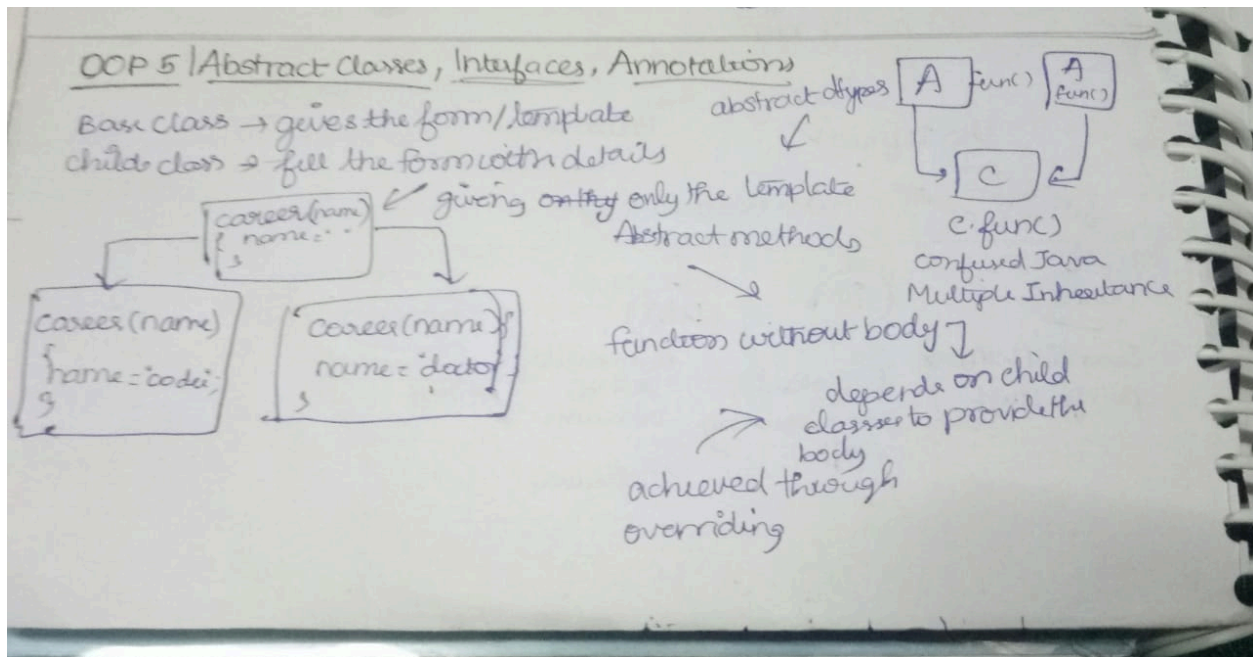 OOP 5 | Abstract Classes, Interfaces, Annotations
Base class → gives the form/template
child class → fill the form with details
giving only the template
career(name)
{ name = ' '
}
career(name)
{
name = 'coder';
}
career(name) {
name = 'doctor'
}
abstract types
Abstract methods
function without body
depends on child
classes to provide the
body
achieved through
overriding
A func()
A
func()
C
C.func()
confused Java
Multiple Inheritance